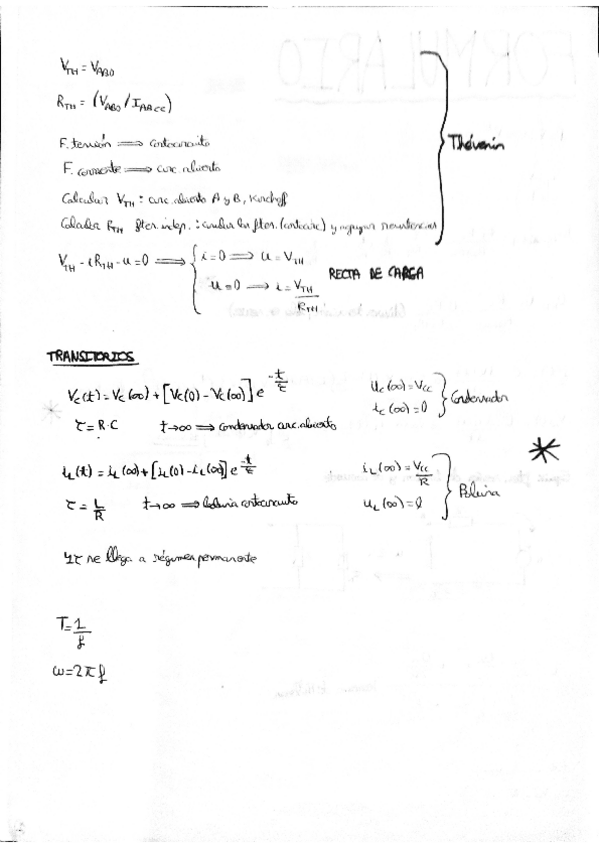 V_TH = V_AB0
R_TH = (V_AB0 / I_ABcc)
F. tensión ⟹ cortocircuito
F. corriente ⟹ circ. abierto
Calcular V_TH : circ. abierto A y B, Kirchoff
Calcular R_TH ftes. indep. : anular las ftes. (cortocirc) y agrupar resistencias
Thévenin
V_TH - i R_TH - u = 0 ⟹ { i = 0 ⟹ u = V_TH
u = 0 ⟶ i = V_TH / R_TH
RECTA DE CARGA
TRANSITORIOS
V_c(t) = V_c(∞) + [V_c(0) - V_c(∞)] e^(-t/τ)
τ = R·C t→∞ ⟹ condensador circ. abierto
u_c(∞) = V_cc
i_c(∞) = 0
Condensador
i_L(t) = i_L(∞) + [i_L(0) - i_L(∞)] e^(-t/τ)
τ = L/R t→∞ ⟹ bobina cortocircuito
i_L(∞) = V_cc / R
u_L(∞) = 0
Bobina
*
4τ se llega a régimen permanente
T = 1/f
ω = 2πf